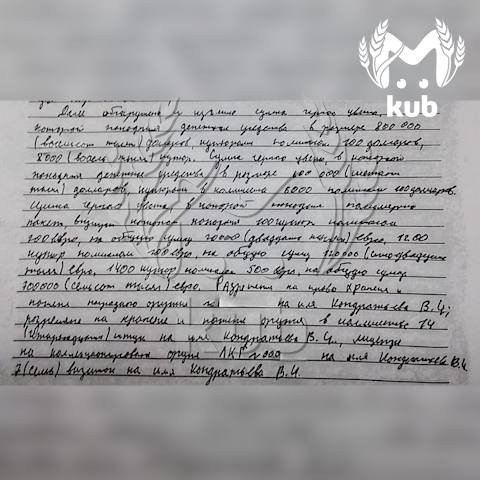 M
kub
Далее обнаружена и изъята сумка черного цвета, в
которой находятся денежные средства в размере 800 000
(восемьсот тысяч) долларов, купюрами номиналом 100 долларов,
8000 (восемь тысяч) купюр. Сумка черного цвета, в которой
находятся денежные средства в размере 600 000 (шестьсот
тысяч) долларов, купюрами в количестве 6000 номиналом 100 долларов.
Сумка черного цвета в которой находится полимерный
пакет, внутри которого находятся 100 купюр номиналом
200 евро, на общую сумму 20000 (двадцать тысяч) евро, 1200
купюр номиналом 100 евро, на общую сумму 120000 (сто двадцать
тысяч) евро, 1400 купюр номиналом 500 евро на общую сумму
700000 (семьсот тысяч) евро. Разрешение на право хранения и
ношения наградного оружия на имя Кондратьева В.Ч.;
разрешение на хранение и ношение оружия в количестве 14
(четырнадцати) штук на имя Кондратьева В.Ч., лицензия
на коллекционирование оружия ЛКГ на имя Кондратьева В.Ч.
7 (семь) визиток на имя Кондратьева В.Ч.